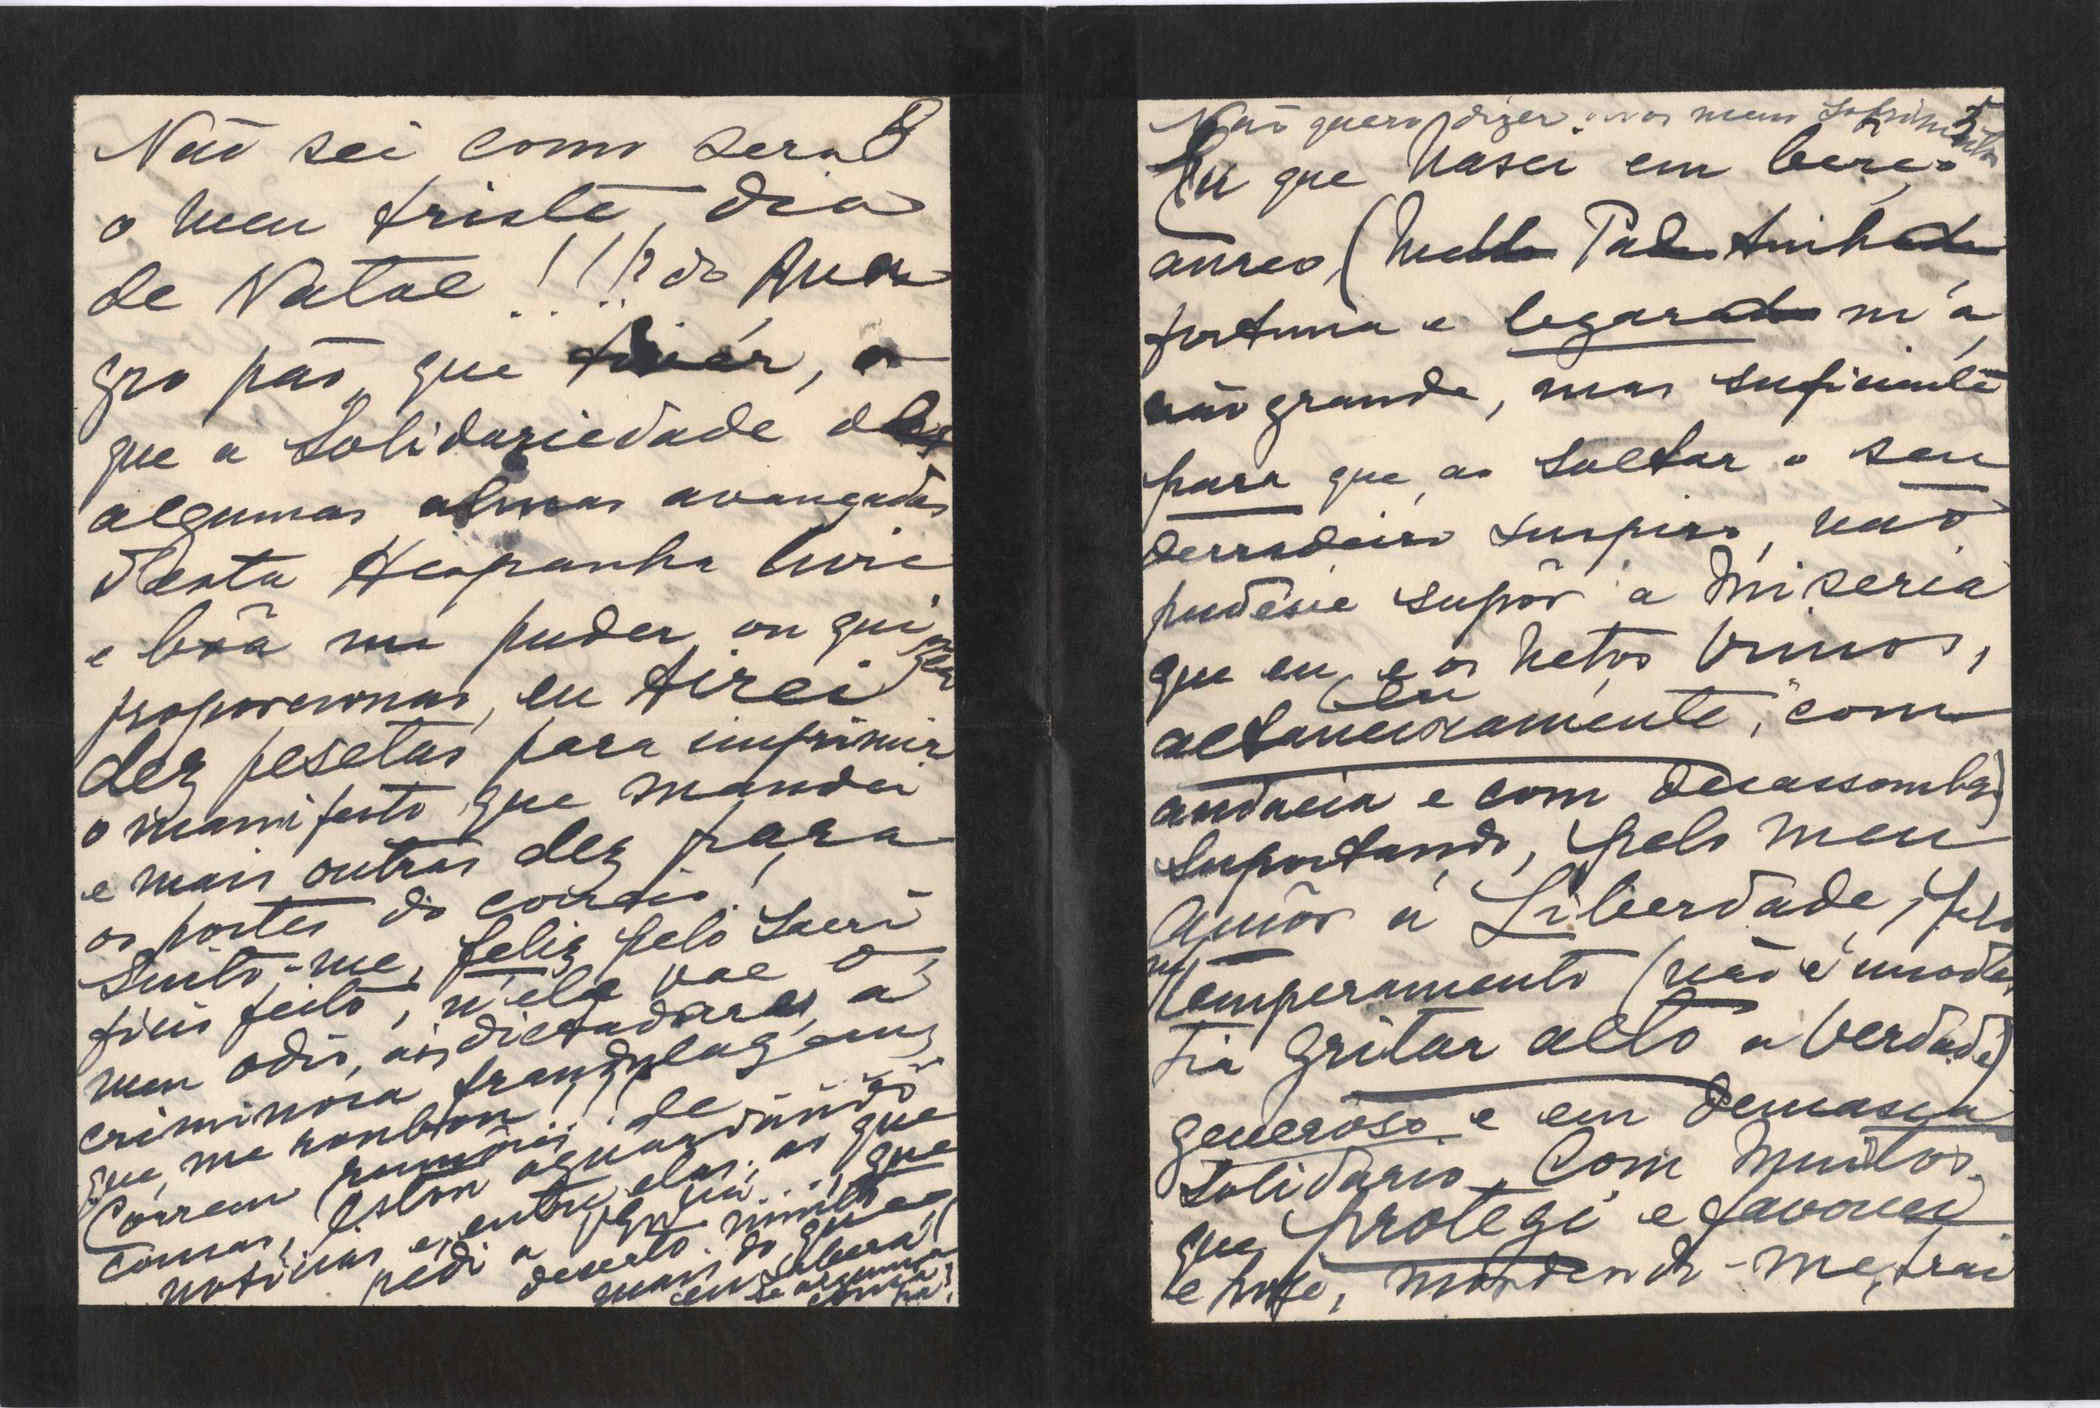 8
Não sei como será
o meu triste dia
de Natal!!!? do
gro pão, que tivér, o
que a Solidariedade
algumas almas avançadas
d'esta Hespanha livre
e bôa me puder, ou quizer
proporcionar, eu tirei
dez pesetas para imprimir
o manifesto que mandei
e mais outras dez para
os portes do correio!
Sinto-me, feliz pelo Sacri
ficio feito, n'ele vae o
meu odio, aos dictadores, á
criminosa
que, me
Correm rumôres de
cousas, estou aguardando
noticias e, entre elas, as que
pedi a
deserto
mais do que
eu saberá
se alguma
cousa ha?
7
Não quero dizer meus Sofrimentos
Eu que Nasci em berço
aureo, (Meu Pae tinha
fortuna e legara m'a,
não grande, mas suficiente
para que, ao soltar o seu
derradeiro suspiro, não
pudésse supôr a Miseria
que eu, e os Netos vimos,
eu
altaneiramente, com
audacia e com desassombro)
Suportando, pelo meu
Amôr á Liberdade, pelo
Temperamento (não é modes
tia gritar alto a verdade)
generôso e em demasia
Solidario, Com Muitos.
que protegi e favoreci
e hoje, mordendo-me, trai